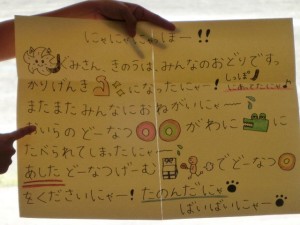 にゃにゃにゃんぽー!!
くみさん、きのうは、みんなのおどりですっ
かりげんきになったにゃー!
しっぽ
じぁってたにゃ
またまたみんなにおねがいにゃー
いらのどーなつがわにに
たべられてしまったにゃー
あしたどーなつげーむでどーなつ
なくださいにゃー!たのんだにゃ
ばいばいにゃー